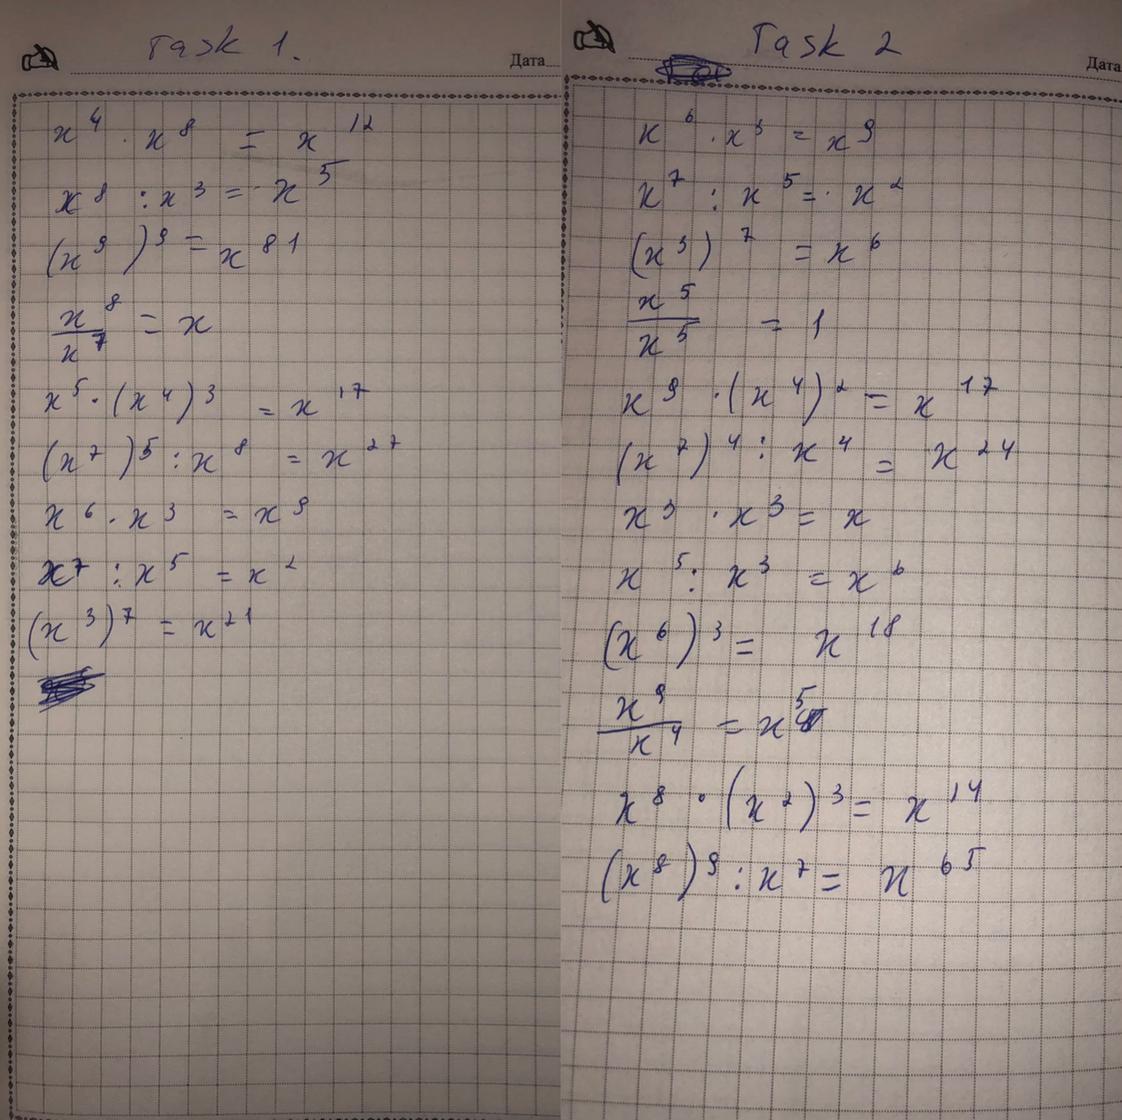 Task 1.
Дата
x⁴ · x⁸ = x¹²
x⁸ : x³ = x⁵
(x⁹)⁹ = x⁸¹
x⁸/x⁷ = x
x⁵ · (x⁴)³ = x¹⁷
(x⁷)⁵ : x⁸ = x²⁷
x⁶ · x³ = x⁹
x⁷ : x⁵ = x²
(x³)⁷ = x²¹
Task 2
Дата
x⁶ · x³ = x⁹
x⁷ : x⁵ = x²
(x³)⁷ = x⁶
x⁵/x⁵ = 1
x⁹ · (x⁴)² = x¹⁷
(x⁷)⁴ : x⁴ = x²⁴
x³ · x³ = x
x⁵ : x³ = x⁶
(x⁶)³ = x¹⁸
x⁹/x⁴ = x⁵
x⁸ · (x²)³ = x¹⁴
(x⁸)⁹ : x⁷ = x⁶⁵